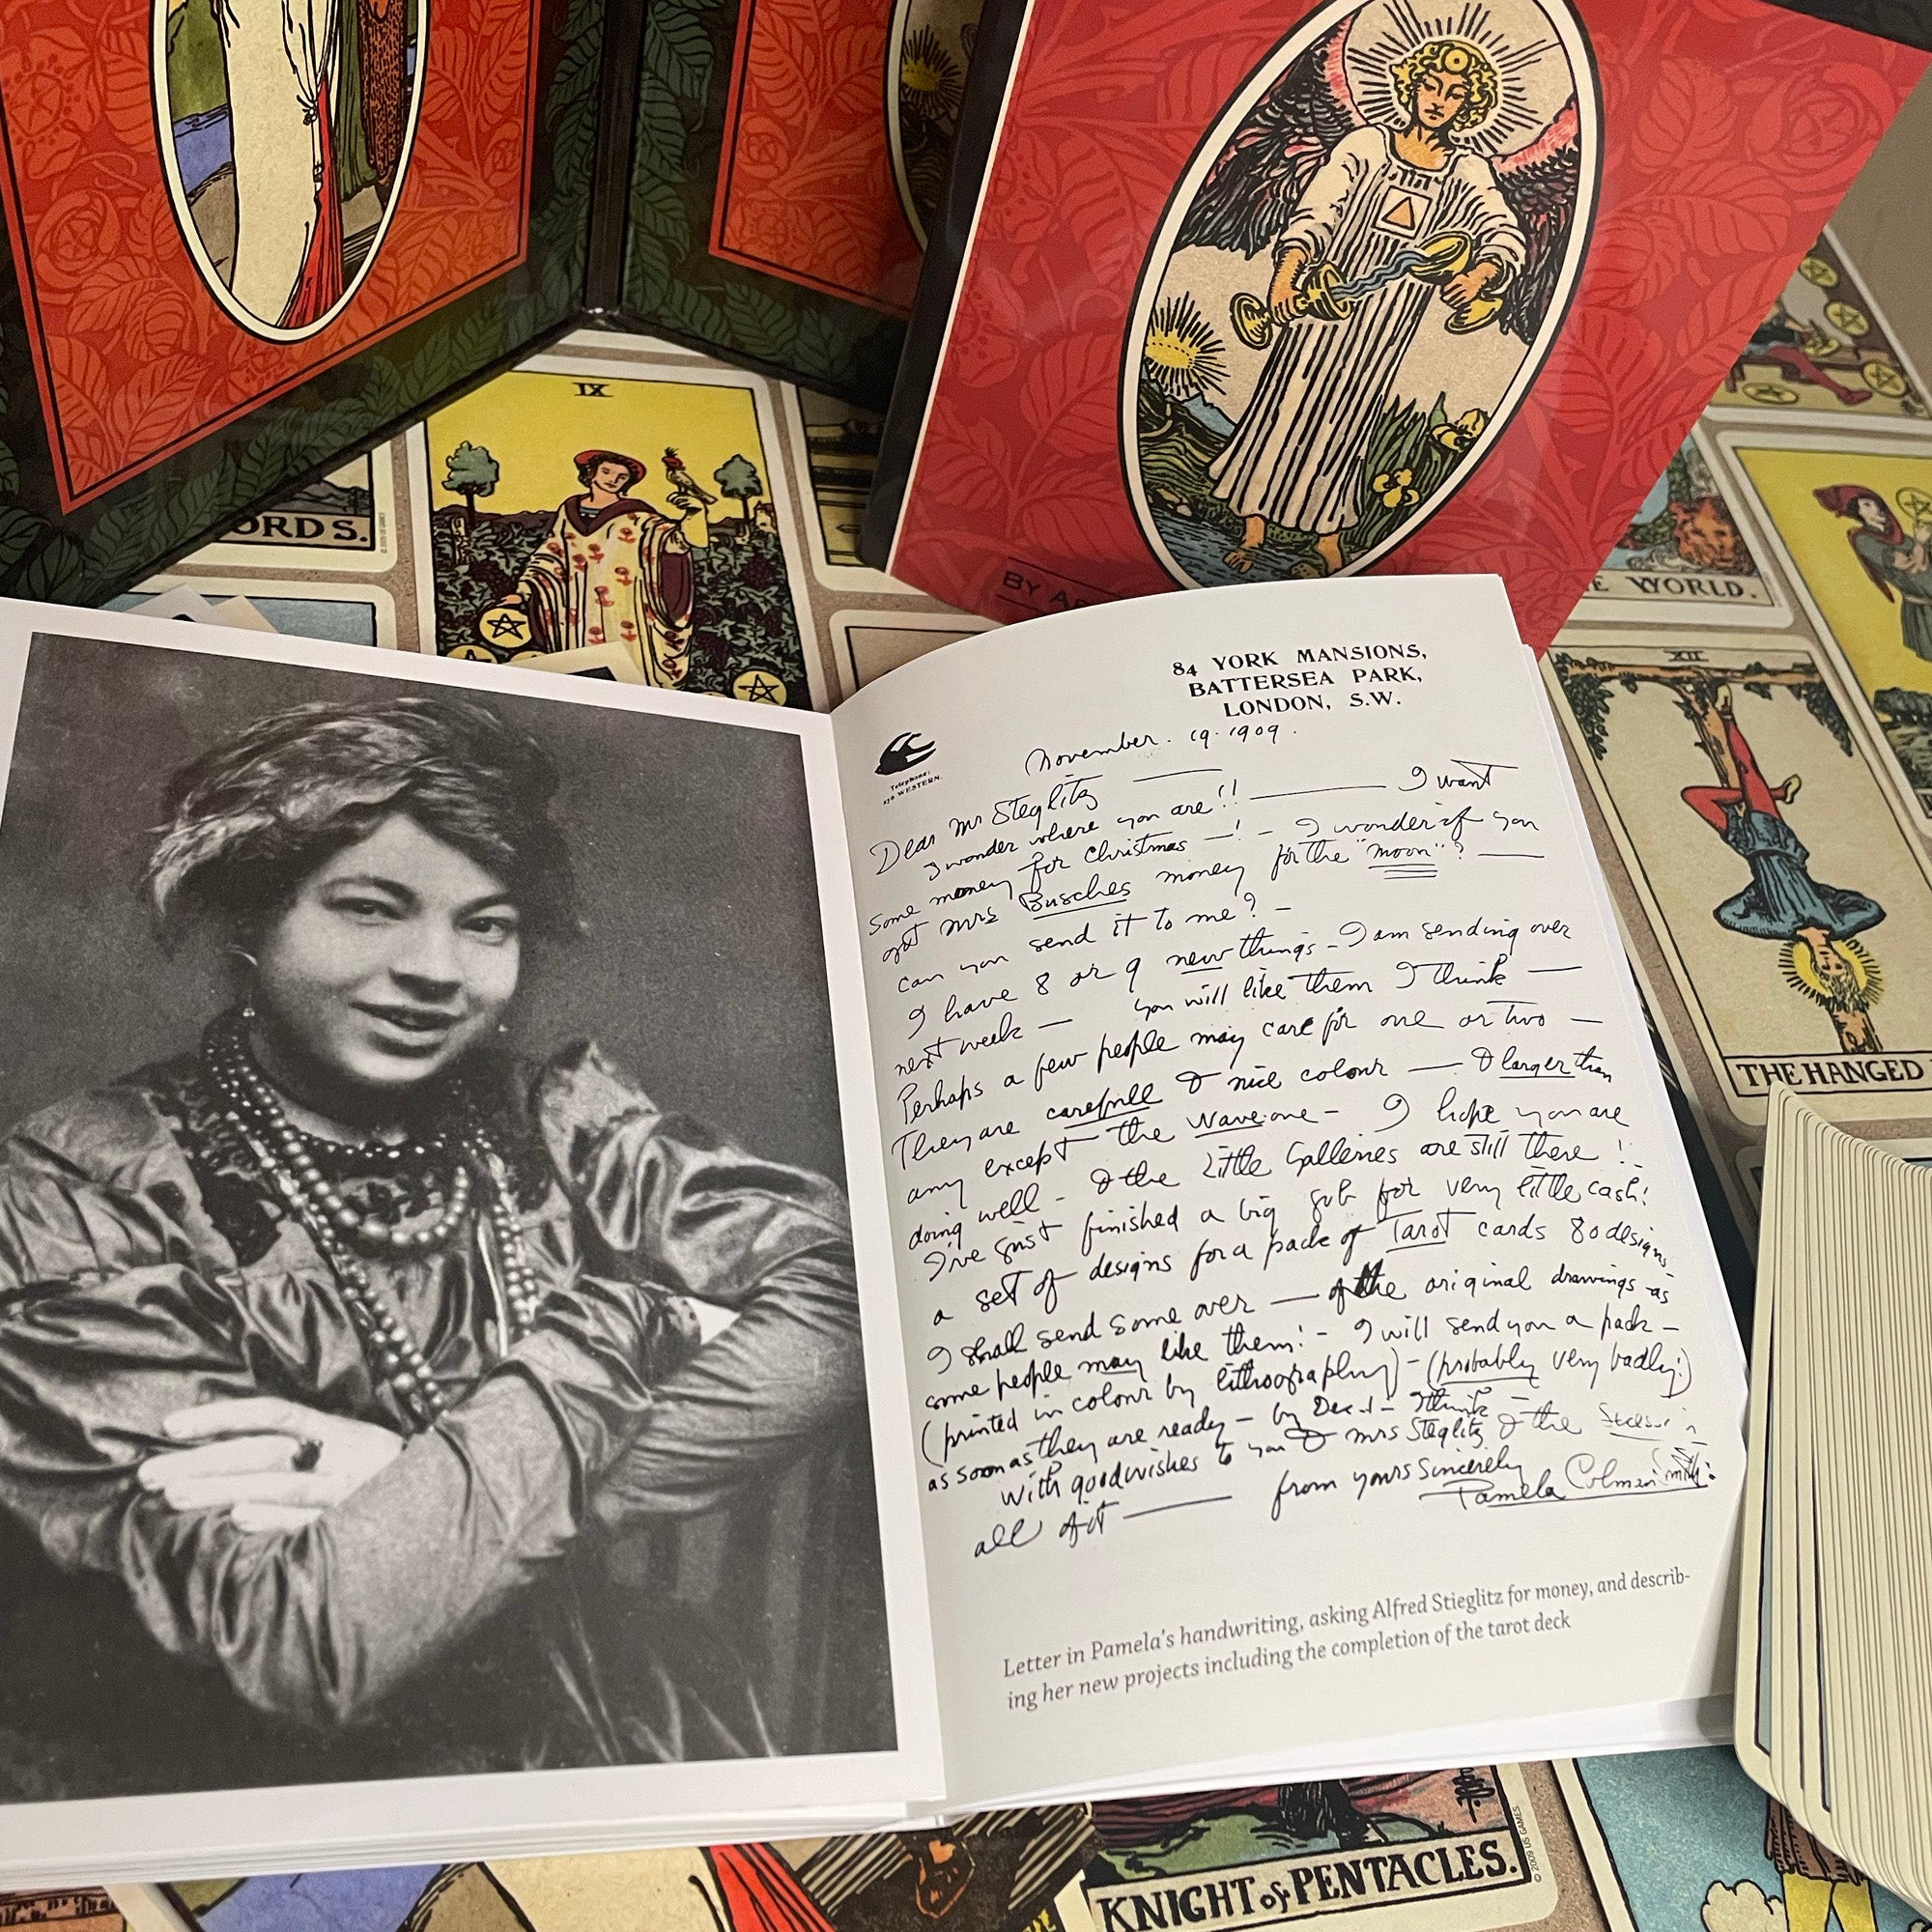 IX
ORDS.
© 2009 US GAMES
BY A
E WORLD.
XII
THE HANGED
84 YORK MANSIONS,
BATTERSEA PARK,
LONDON, S.W.
Telephone:
WESTERN.
November. 19. 1909.
Dear Mr Steglitz —
I wonder where you are!! — I want
some money for Christmas —! - I wonder if you
got Mrs Busches money for the "moon"? —
can you send it to me? -
I have 8 or 9 new things - I am sending over
next week — you will like them I think —
Perhaps a few people may care for one or two —
They are carefull & nice colour — & larger than
any except the Wave one - I hope you are
doing well - & the Little Galleries are still there!!
I've just finished a big job for very little cash!
a set of designs for a pack of Tarot cards 80 designs
I shall send some over — of the original drawings - as
some people may like them! - I will send you a pack -
(printed in colour by lithography) - (probably very badly!)
as soon as they are ready - by Dec. 1 - I think
with good wishes to you & Mrs Steglitz & the
all of it — from yours Sincerely
Pamela Colman Smith.
Letter in Pamela's handwriting, asking Alfred Stieglitz for money, and describ-
ing her new projects including the completion of the tarot deck
KNIGHT of PENTACLES.
© 2009 US GAMES